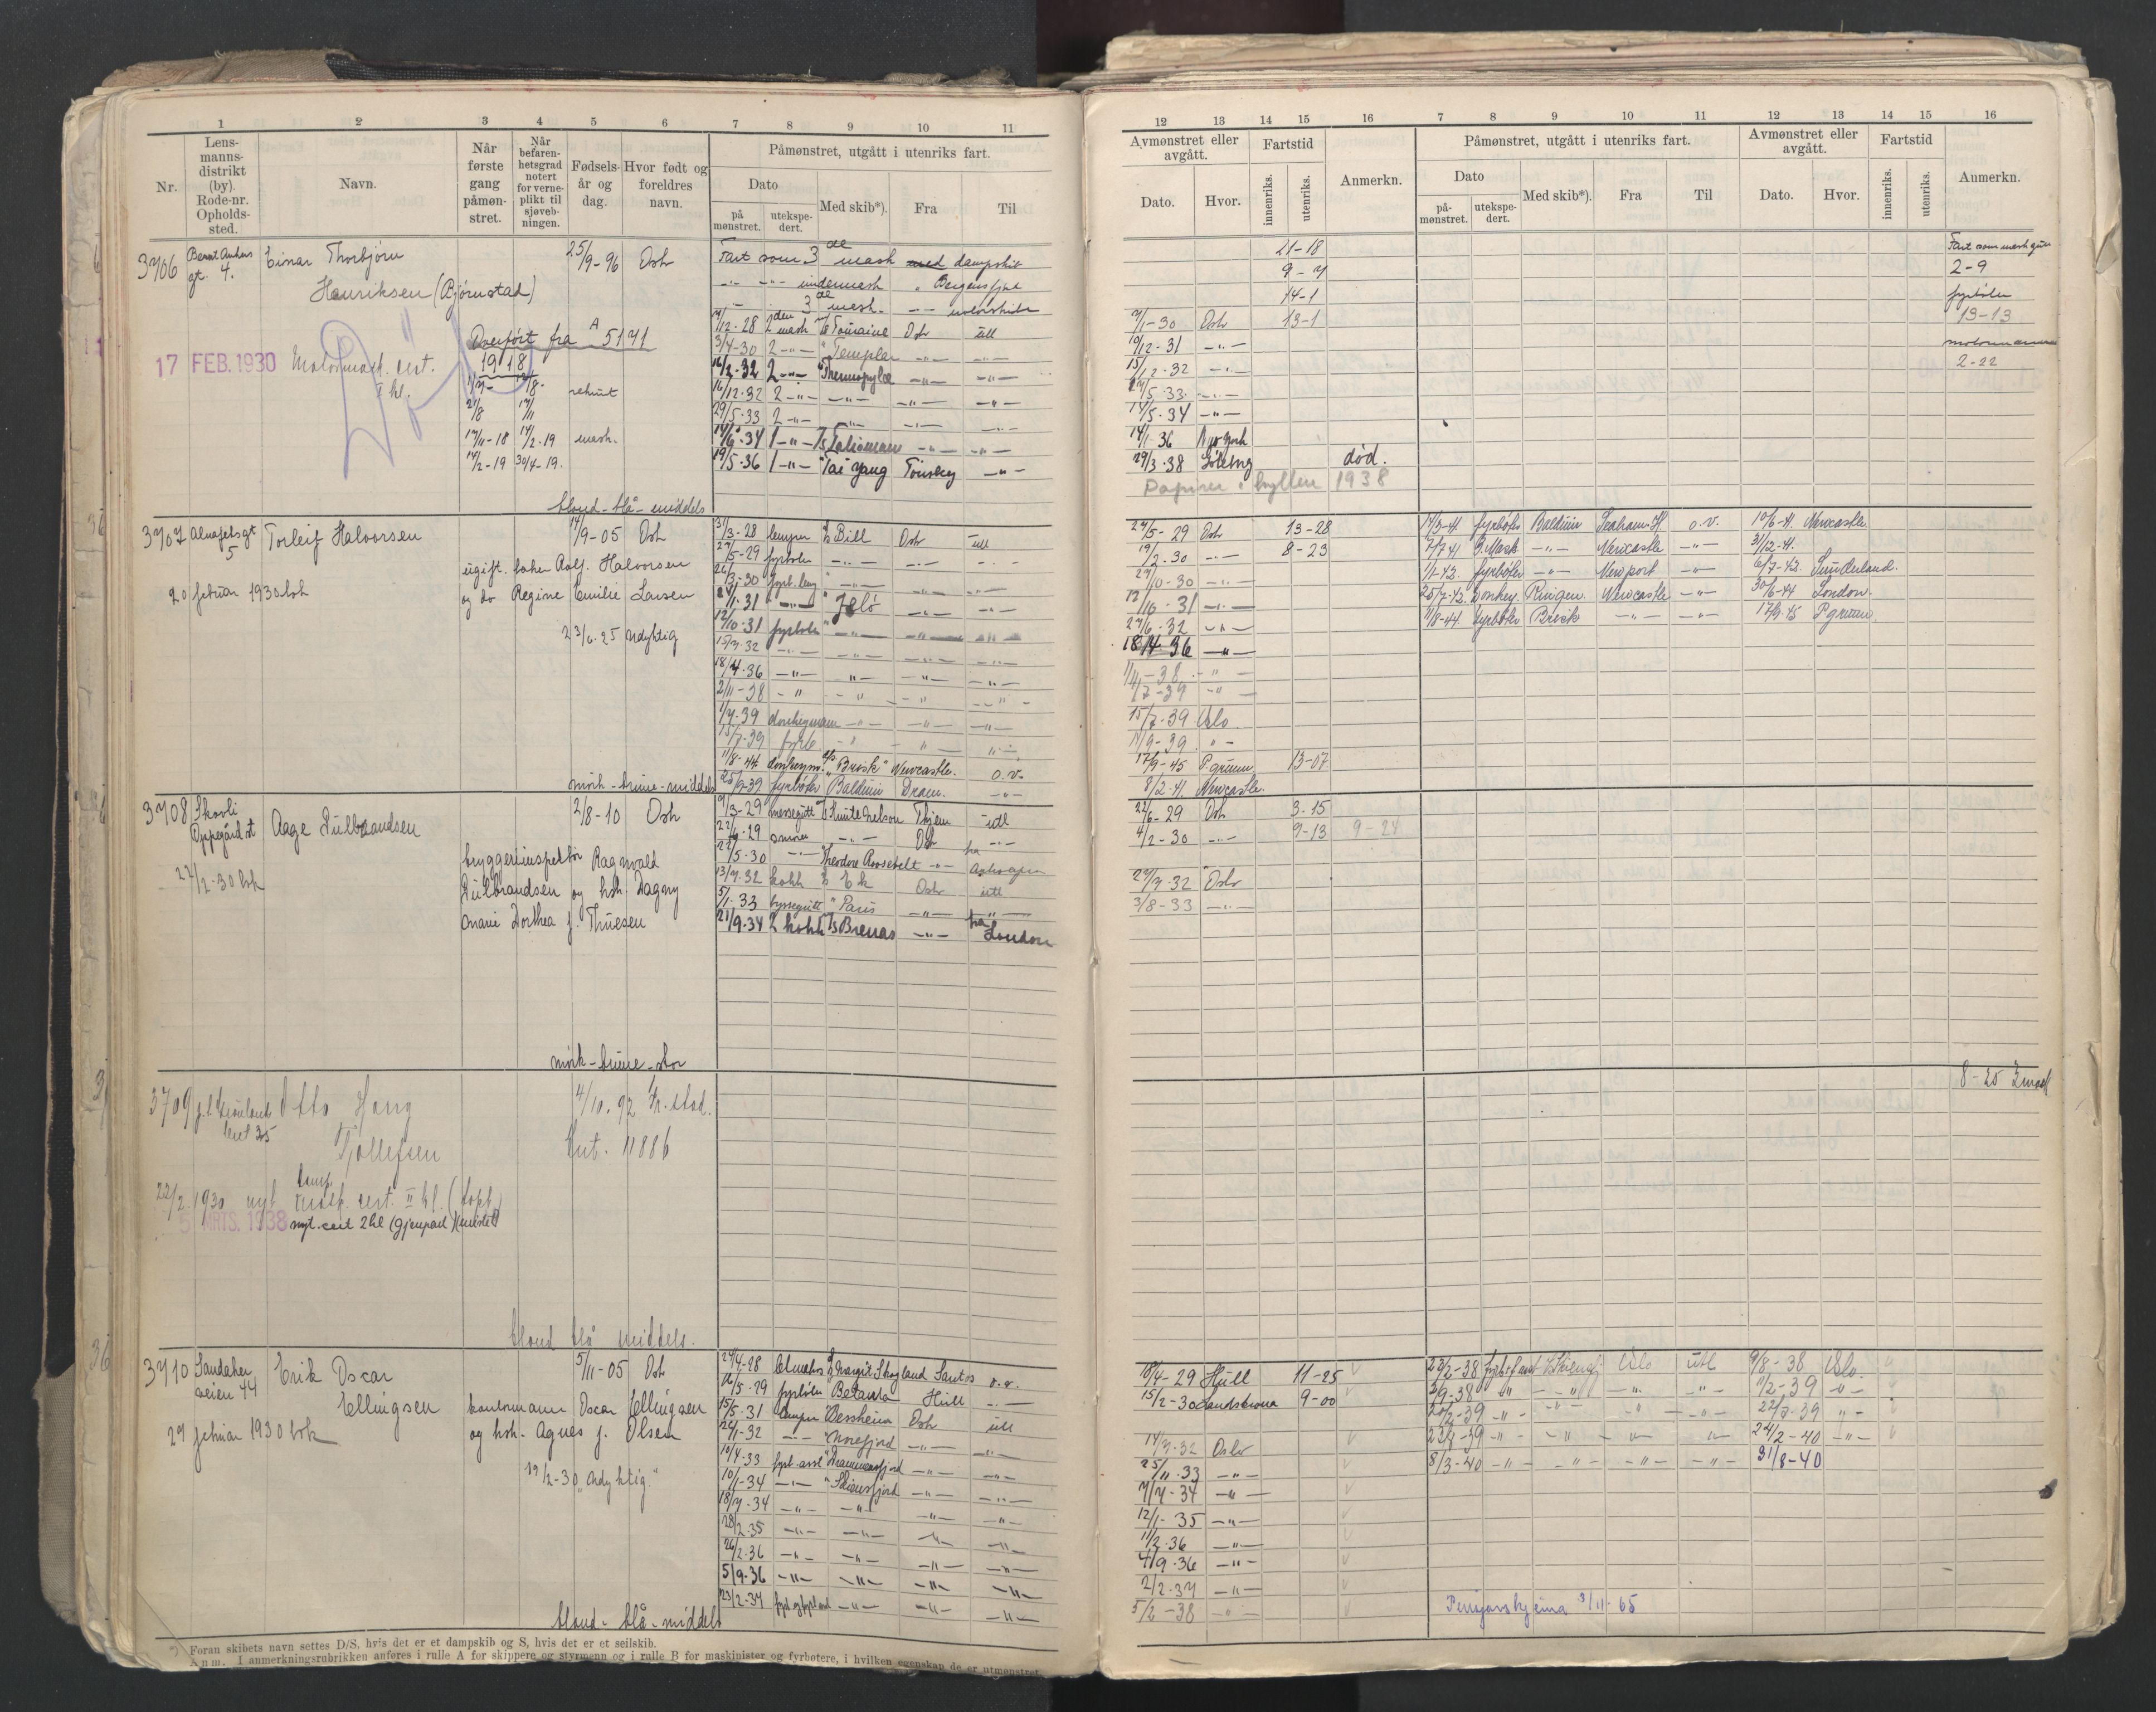 1 2 3 4 5 6 7 8 9 10 11
Nr.
Lens-
manns-
distrikt
(by).
Rode-nr.
Opholds-
sted.
Navn.
Når
første
gang
påmøn-
stret.
Når
befaren-
hetsgrad
notert
for verne-
plikt til
sjøveb-
ningen.
Fødsels-
år og
dag.
Hvor født og
foreldres
navn.
Påmønstret, utgått i utenriks fart.
Dato
på
mønstret.
utekspe-
dert.
Med skib*).
Fra
Til
3706
gt. 4.
Einar Thorbjørn
Henriksen (Bjørnstad)
25/9-96 Oslo
Død
Overført fra A 5141
1918
17 FEB. 1930 Motormask. cert.
I kl.
rekrut
17/11-18 14/2-19 mask.
14/2-19 30/4-19.
blond - blå - middels
Fart som 3de mask med dampskib
undermask Bergensfjord
3de mask. motorskibe
/12-28 2den mask Touraine Oslo utl
3/4-30 2 -"- Templar -"- -"-
16/2-32 2 -"- Thermopylæ -"- -"-
16/12-32 2 -"- -"- -"- -"-
29/5-33 2 -"- -"- -"- -"-
14/6-34 1 -"- Talisman -"- -"-
19/5-36 1 -"- Tai Yang Tønsberg -"-
3707
Almafjelsgt
5
Torleif Halvorsen
20 februar 1930 bok
14/9-05 Oslo
ugift. baker Adf. Halvorsen
og do Regine Emilie Larsen
23/6-25 Udyktig
mørk - brune - middels
31/3-28 lemper Bill Oslo utl
27/5-29 fyrbøter -"- -"- -"-
/3-30 fyrb. lemp -"- -"- -"-
24/1-31 -"- Jelø -"- -"-
12/10-31 fyrbøter -"- -"- -"-
15/7-32 -"- -"- -"- -"-
18/4-36 -"- -"- -"- -"-
2/11-38 -"- -"- -"- -"-
1/7-39 donkeymann -"- -"- -"-
15/7-39 fyrb -"- -"- -"-
11/8-44 donkeym. "Brisk" Newcastle. o.v.
25/9-39 fyrbøter "Balduin Dram. -"-
3708
Skovli
Oppegård st
Aage Gulbrandsen
27/2-30 bok
2/8-10 Oslo
bryggeriinspektør Ragnvald
Gulbrandsen og hstr. Dagny
Marie Dorthea f. Thuesen
mørk - brune - stor
/3-29 messegutt Knute Nelson Thjem utl
22/6-29 smører -"- Oslo -"-
22/5-30 -"- Theodore Roosevelt -"- fra Antwerpen
13/7-32 kokk Ek Oslo utl
5/1-33 byssegutt "Paris -"- -"-
21/9-34 2 kokk Brenas -"- fra London
3709
Otto Haug
Tollefsen
4/10-92 Fr.stad.
Ant. 11886
22/2 1930 nyt lamp mask. cert. II kl. (tapt)
5 MRTS. 1938 nyt. cert 2 kl (gjenpart) (mistet)
blond blå middels.
3710
Sandaker
veien 44
Erik Oscar
Ellingsen
29 februar 1930 bok
5/11-05 Oslo
kontormann Oscar Ellingsen
og hstr. Agnes f. Olsen
19/2-30 "Udyktig"
blond - blå - middels
24/4-28 Margit Skogland Santos o.v.
16/5-29 fyrbøter Betania Hull -"-
15/5-31 lemper Bessheim Oslo utl
24/1-32 -"- "Norefjord -"- -"-
10/4-33 fyrb.asst "Drammensfjord -"- -"-
10/1-34 -"- "Skiensfjord -"- -"-
18/7-34 -"- -"- -"- -"-
28/2-35 -"- -"- -"- -"-
26/2-36 -"- -"- -"- -"-
5/9-36 -"- -"- -"- -"-
23/2-37 -"- -"- -"-
*) Foran skibets navn settes D/S, hvis det er et dampskib og S, hvis det er et seilskib.
Anm. I anmerkningsrubrikken anføres i rulle A for skippere og styrmenn og i rulle B for maskinister og fyrbøtere, i hvilken egenskap de er utmønstret.
12 13 14 15 16 7 8 9 10 11 12 13 14 15 16
Avmønstret eller
avgått.
Dato.
Hvor.
Fartstid
innenriks.
utenriks.
Anmerkn.
Påmønstret, utgått i utenriks fart.
Dato
på-
mønstret.
utekspe-
dert.
Med skib*).
Fra
Til
Avmønstret eller
avgått.
Dato.
Hvor.
Fartstid
innenriks.
utenriks.
Anmerkn.
21-18
9-7
14-1
7/1-30 Oslo 13-1
10/12-31 -"-
15/12-32 -"-
24/5-33 -"-
14/5-34 -"-
14/1-36 New York
29/3-38 Göteborg død.
Papirer i hyllen 1938
2-9
fyrbøter
13-13
motormann
2-22
24/5-29 Oslo 13-28
19/2-30 -"- 8-23
/10-30 -"-
12/10-31 -"-
27/6-32 -"-
18/4-36 -"-
1/11-38 -"-
1/7-39 -"-
15/7-39 Oslo
/9-39 -"-
17/9-45 Pgrunn 13-07
8/2-41 Newcastle.
14/3-41 fyrbøter Balduin Seaham H. o.v. 19/6-41 Newcastle
7/7-41 3.Mask -"- Newcastle -"- 31/12-41.
1/1-42. fyrbøter -"- Newport -"- 6/7-42. Sunderland.
25/7-42. Donkey. Ringen. Newcastle -"- 30/6-44 London.
11/8-44. fyrbøter Brisk -"- -"- 17/9-45 Pgrunn
22/6-29 Oslo 3-15
4/2-30 -"- 9-13 9-24
27/7-32 Oslo
3/8-33 -"-
8-25 2 mask
18/4-29 Hull 11-25
15/2-30 Sandstrøna 9-00
14/7-32 Oslo
25/11-33 -"-
7/7-34 -"-
12/1-35 -"-
11/2-36 -"-
4/9-36 -"-
2/2-37 -"-
5/2-38 -"-
23/2-38 Oslo utl 9/8-38 Oslo.
2/9-38 -"- -"- -"- -"- 11/2-39 -"-
28/2-39 -"- -"- -"- -"- 22/7-39 -"-
-"- -"- -"- -"- 24/2-40 -"-
8/3-40 -"- -"- -"- -"- 31/8-40
Pensjonskjema 3/11-65